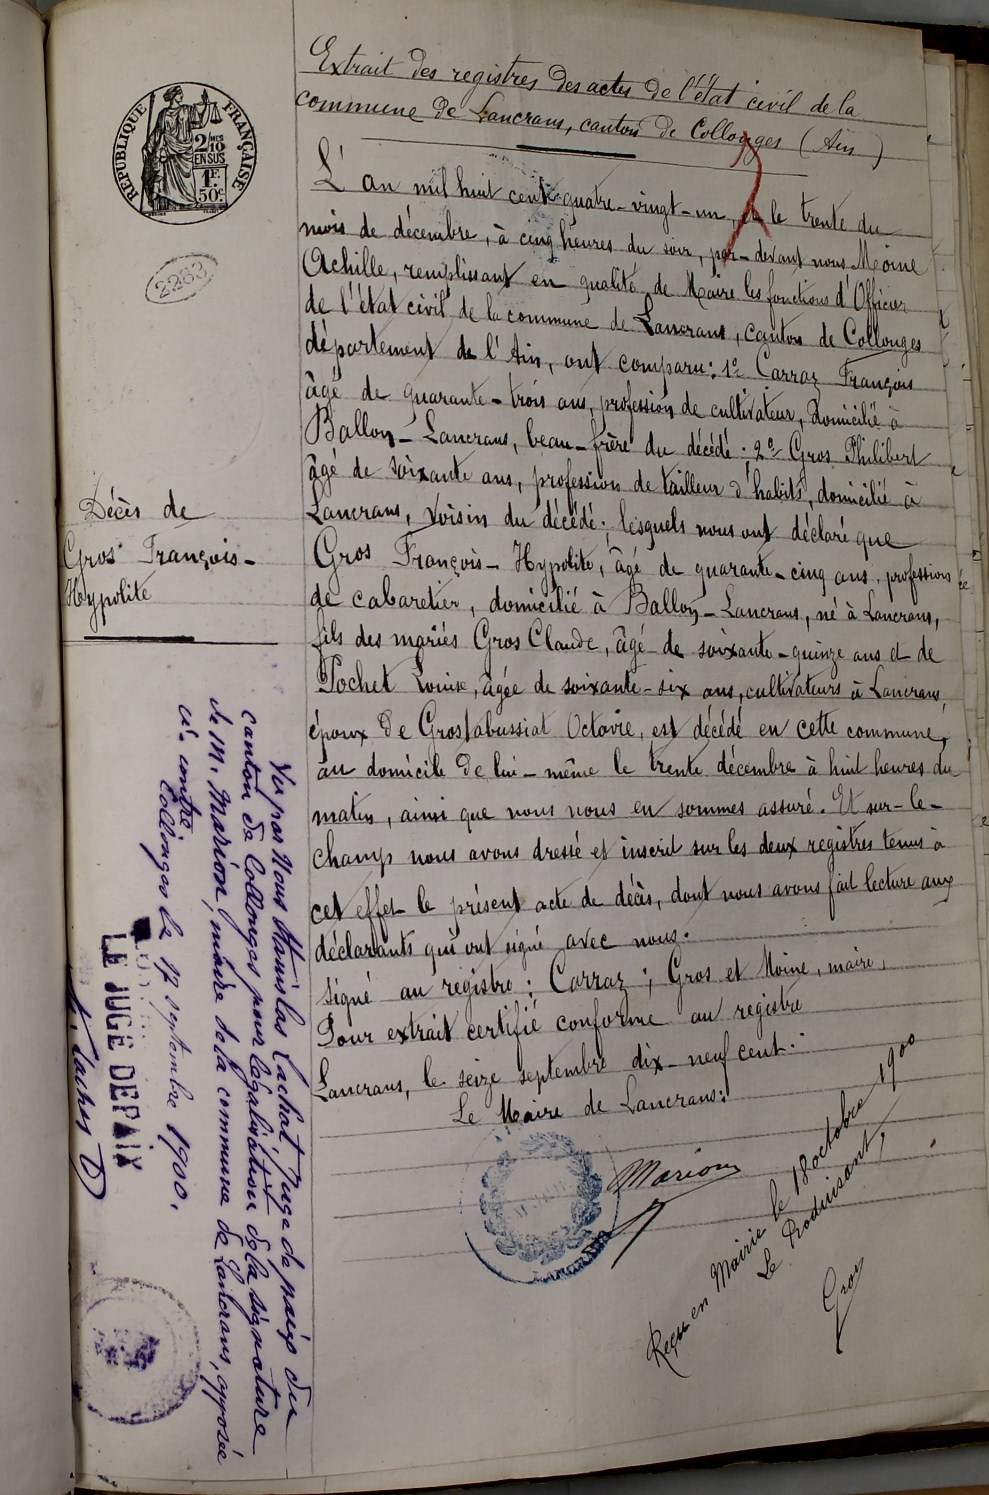 Extrait des registres des actes de l'état civil de la
commune de Lancrans, canton de Collonges (Ain)
RÉPUBLIQUE FRANÇAISE
2/10 MES
EN SUS
1F.
50c
2263
L'an mil huit cent quatre-vingt-un, et le trente du
mois de décembre, à cinq heures du soir, par-devant nous Moine
Achille, remplissant en qualité de Maire les fonctions d'Officier
de l'état civil de la commune de Lancrans, canton de Collonges
département de l'Ain, ont comparu: 1º Carraz François
âgé de quarante-trois ans, profession de cultivateur, domicilié à
Ballon-Lancrans, beau-frère du décédé. 2º Gros Philibert
âgé de soixante ans, profession de tailleur d'habits, domicilié à
Lancrans, voisin du décédé; lesquels nous ont déclaré que
Gros François-Hypolite, âgé de quarante-cinq ans, profession
de cabaretier, domicilié à Ballon-Lancrans, né à Lancrans,
fils des mariés Gros Claude, âgé de soixante-quinze ans et de
Pochet Louise, âgée de soixante-six ans, cultivateurs à Lancrans,
époux de Grosfabussiat Octavie, est décédé en cette commune,
au domicile de lui-même le trente décembre à huit heures du
matin, ainsi que nous nous en sommes assuré. Et sur-le-
champ nous avons dressé et inscrit sur les deux registres tenus à
cet effet le présent acte de décès, dont nous avons fait lecture aux
déclarants qui ont signé avec nous.
Signé au registre: Carraz; Gros et Moine, maire,
Pour extrait certifié conforme au registre
Lancrans, le seize septembre dix-neuf cent.
Le Maire de Lancrans:
Marion
Reçu en Mairie le 18 octobre 1900
Le Produisant,
Gros
Décès de
Gros François-
Hypolite
Vu par Nous Stanislas Lachat, Juge de paix du
canton de Collonges pour légalisation de la signature
de M. Marion, maire de la commune de Lancrans, apposée
ci-contre
Collonges le 17 septembre 1900.
LE JUGE DE PAIX
S. Lachat